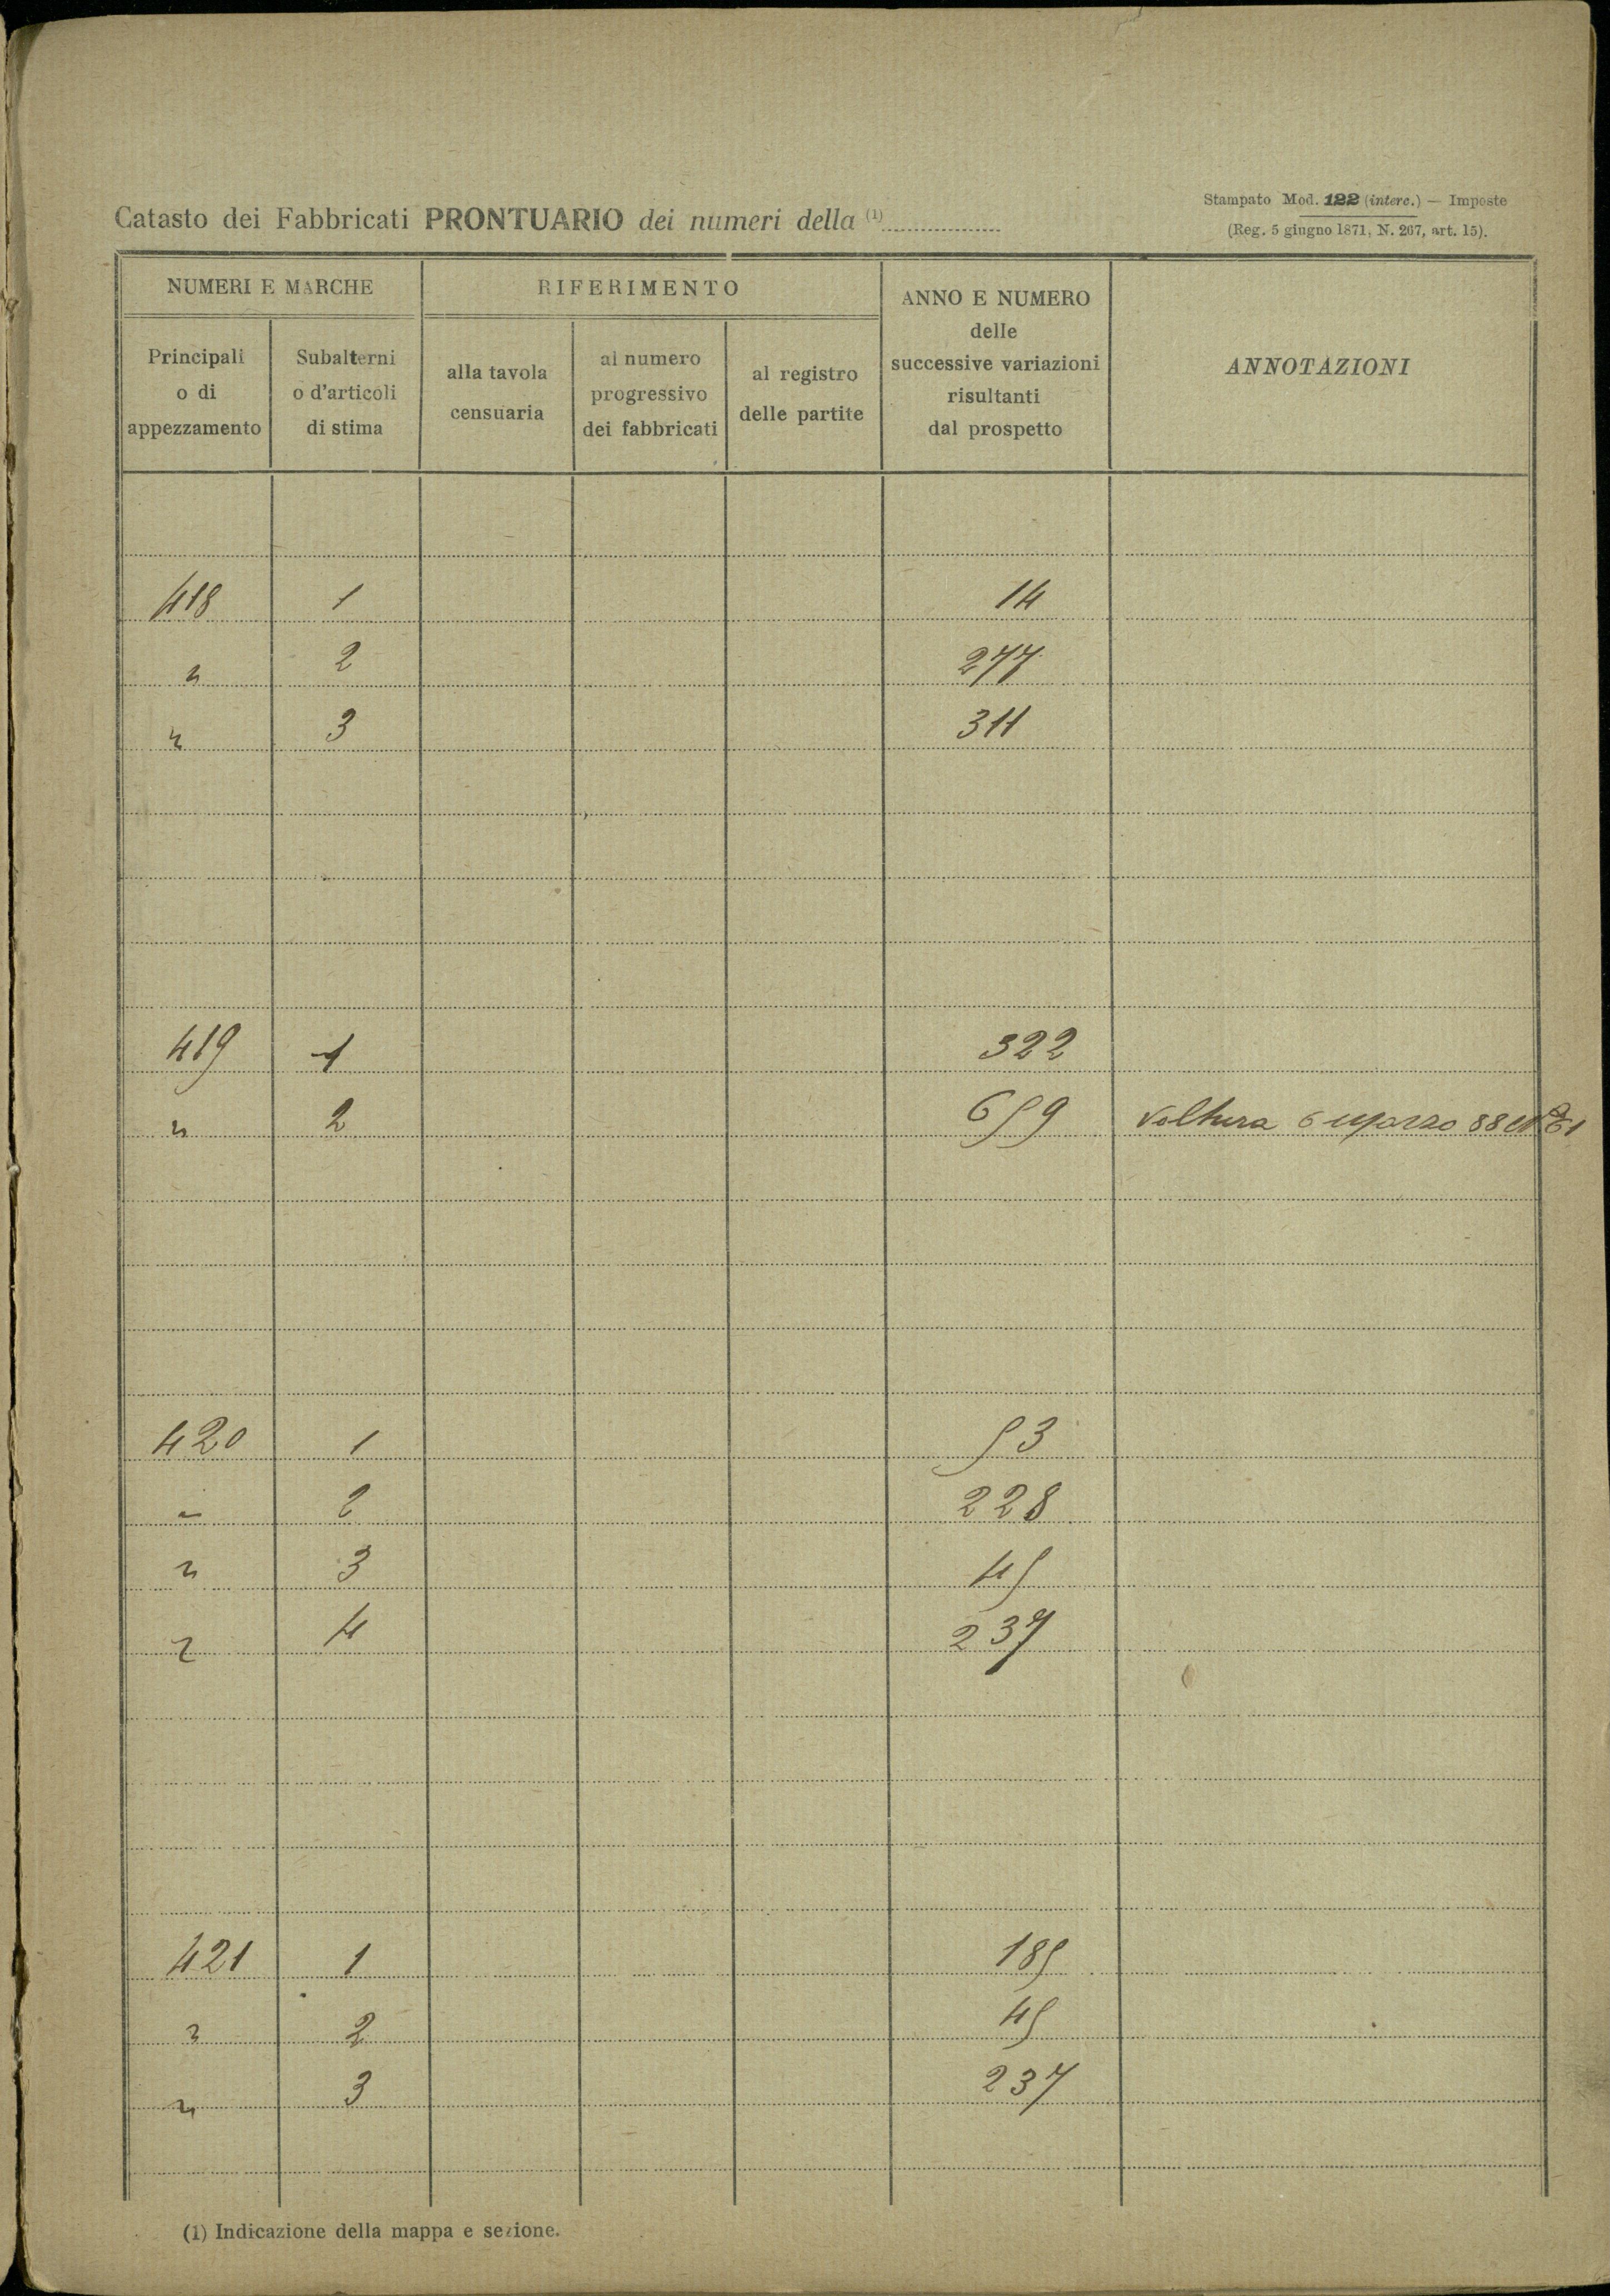 Catasto dei Fabbricati PRONTUARIO dei numeri della (1)
Stampato Mod. 122 (interc.) — Imposte
(Reg. 5 giugno 1871, N. 267, art. 15).
NUMERI E MARCHE
RIFERIMENTO
ANNO E NUMERO
delle
successive variazioni
risultanti
dal prospetto
ANNOTAZIONI
Principali
o di
appezzamento
Subalterni
o d'articoli
di stima
alla tavola
censuaria
al numero
progressivo
dei fabbricati
al registro
delle partite
418 1 14
" 2 277
" 3 311
419 1 322
" 2 659 Voltura 6 Marzo 88
420 1 53
" 2 228
" 3 45
" 4 237
421 1 185
" 2 45
" 3 237
(1) Indicazione della mappa e sezione.